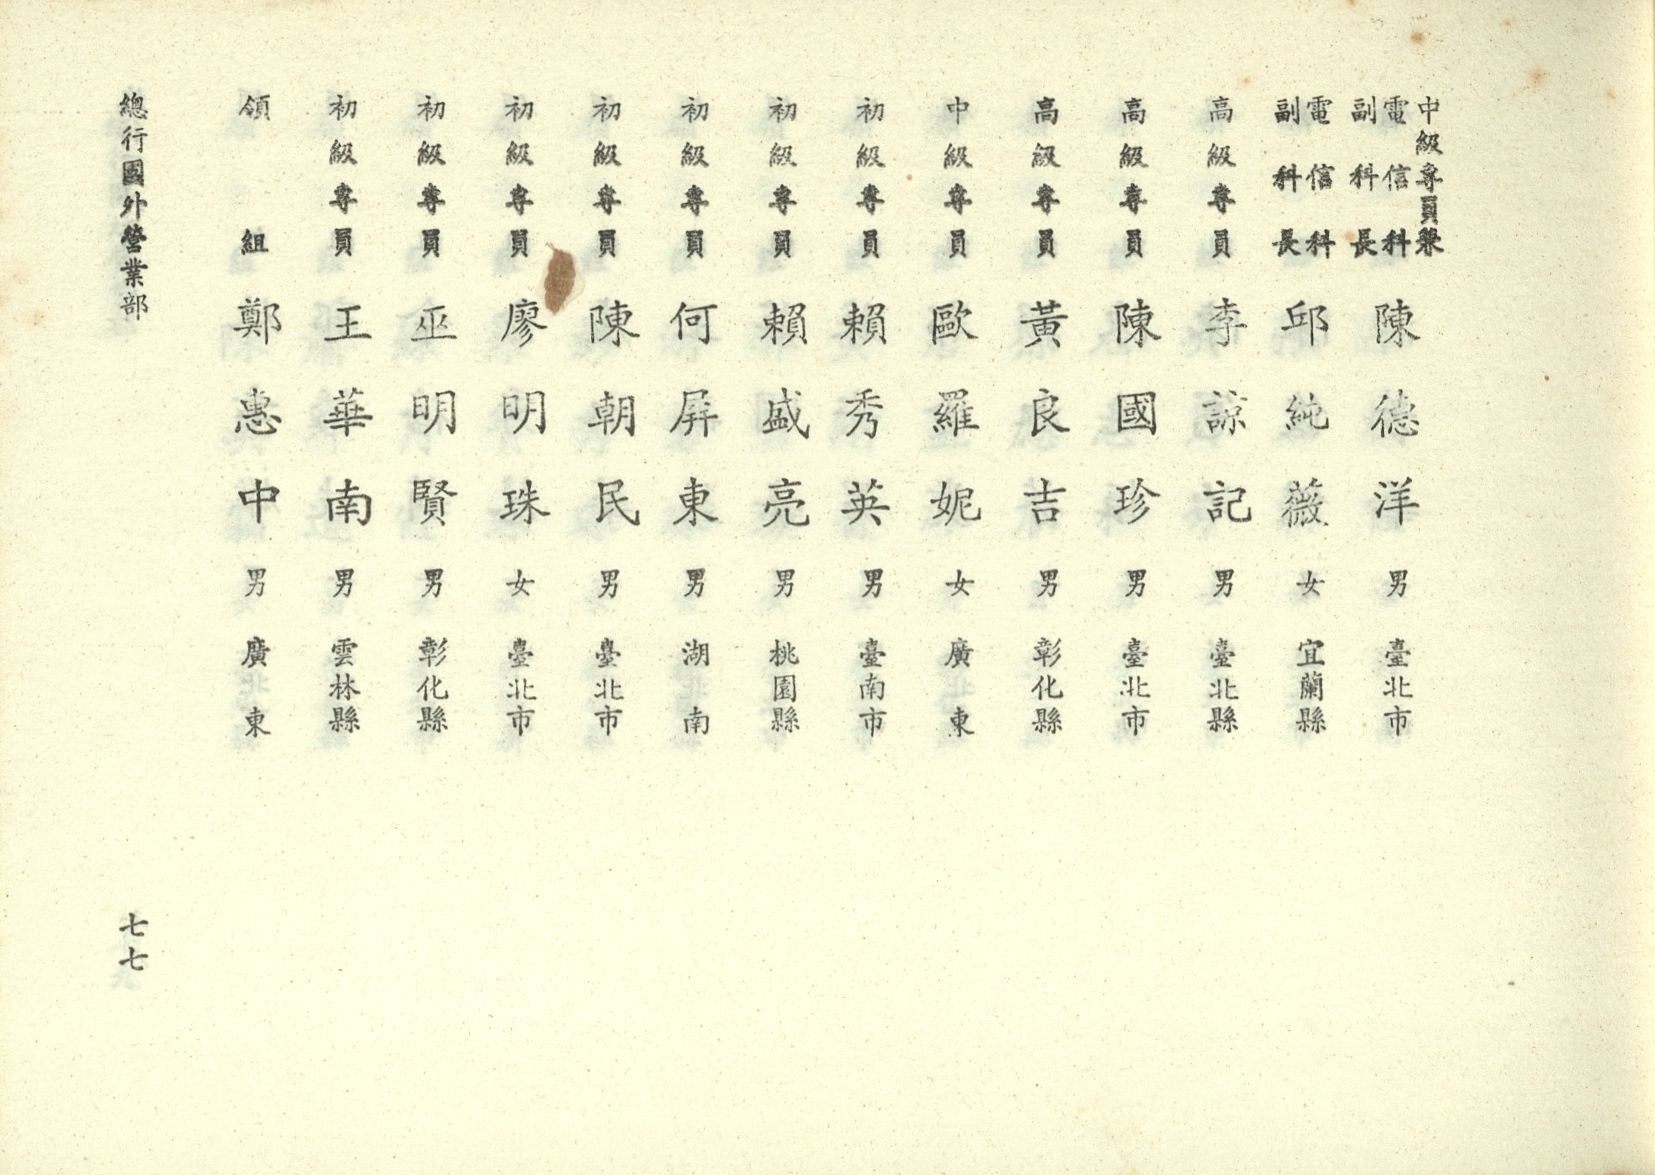 中級專員兼電信科副科長 陳德洋 男 臺北市
電信科副科長 邱純薇 女 宜蘭縣
高級專員 李諒記 男 臺北縣
高級專員 陳國珍 男 臺北市
高級專員 黃良吉 男 彰化縣
中級專員 歐羅妮 女 廣東
初級專員 賴秀英 男 臺南市
初級專員 賴盛亮 男 桃園縣
初級專員 何屏東 男 湖南
初級專員 陳朝民 男 臺北市
初級專員 廖明珠 女 臺北市
初級專員 巫明賢 男 彰化縣
初級專員 王華南 男 雲林縣
領組 鄭惠中 男 廣東
總行國外營業部
七七